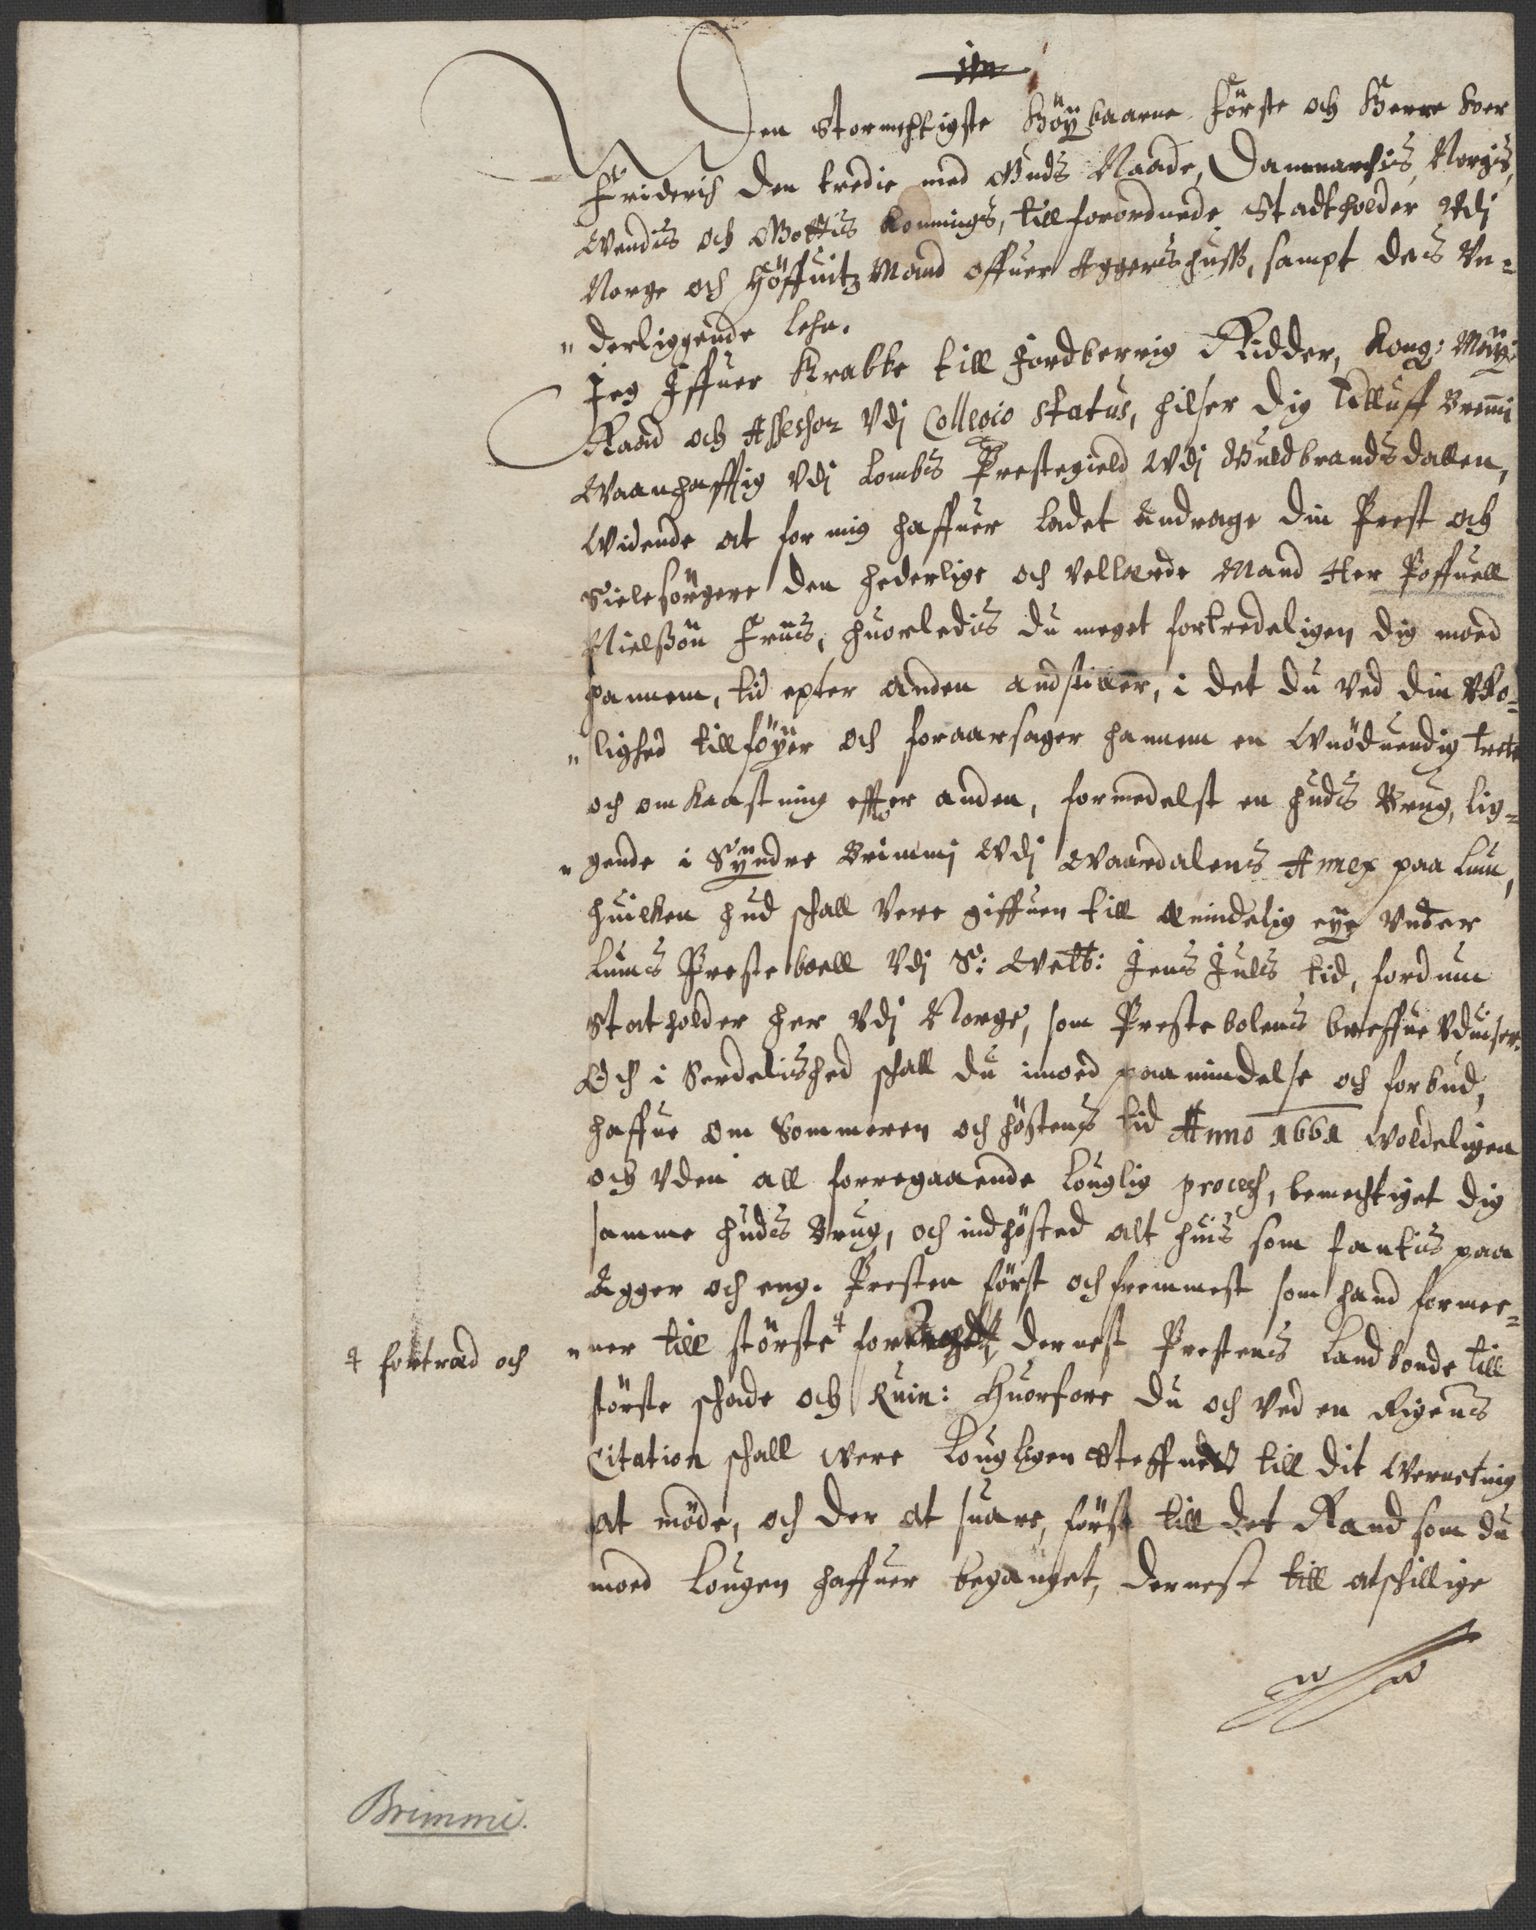 Den Stormechtigste Höÿbaarne Förste och Herre Her
Friderich den tredie med Guds Naade, Danmarchis, Norgis,
Wendis och Gottis Konnings, tillforordnede Stadtholder Vdj
Norge och Höffuitz Mand offuer Aggershuss, sampt des Vn=
" derliggende Lehn.
Jeg Iffuer Krabbe till Jordberrig Ridder, Kong: Maÿ:
Raad och Assessor Vdj Collegio Status, hilser dig Tilluff Brimi
Waanhafftig Vdj Lombs Prestegield Wdj Guldbrandsdallen,
Widende at for mig haffuer ladet Andrage din Prest och
Sielesörgere den hederlige och vellærde Mand Her Poffuell
Nielssön Friis, huorledis du meget fortredeligen dig moed
hannem, tid epter anden anstiller, i det du ved din Vro=
" lighed tillföÿer och foraarsager hannem en Wnöduendig trete
och omkaastning effter anden, formedelst en huds Brug, lig=
" gende i Sÿndre Brimmj Wdj Waardalens Annex paa Lum,
huilken hud schall Vere giffuen till Almindelig eÿe vnder
Lums Presteboell Vdj S: Welb: Jens Juls tid, fordum
Statholder her Vdj Norge, som Prestebolens breffue Vduiser.
Och i Serdelished schall du imoed paamindelse och forbud,
haffue om Sommeren och höstens tid Anno 1661 woldeligen
och Vden all forregaaende Louglig process, bemechtiget dig
samme huds Brug, och indhösted alt huis som fantis paa
Agger och eng. Presten först och fremmest som hand formee=
" ner till störste ⸸ dernest Prestens Landbonde till
⸸ fortræd och
störste schade och Ruin: Huorfore du och Ved en Rigens
Citation schall were Lougligen Steffned till dit Wernetnig
at möde, och der at suare, först till det Rand som du
moed Lougen haffuer begaaget, dernest till atschillige
Brimmi.